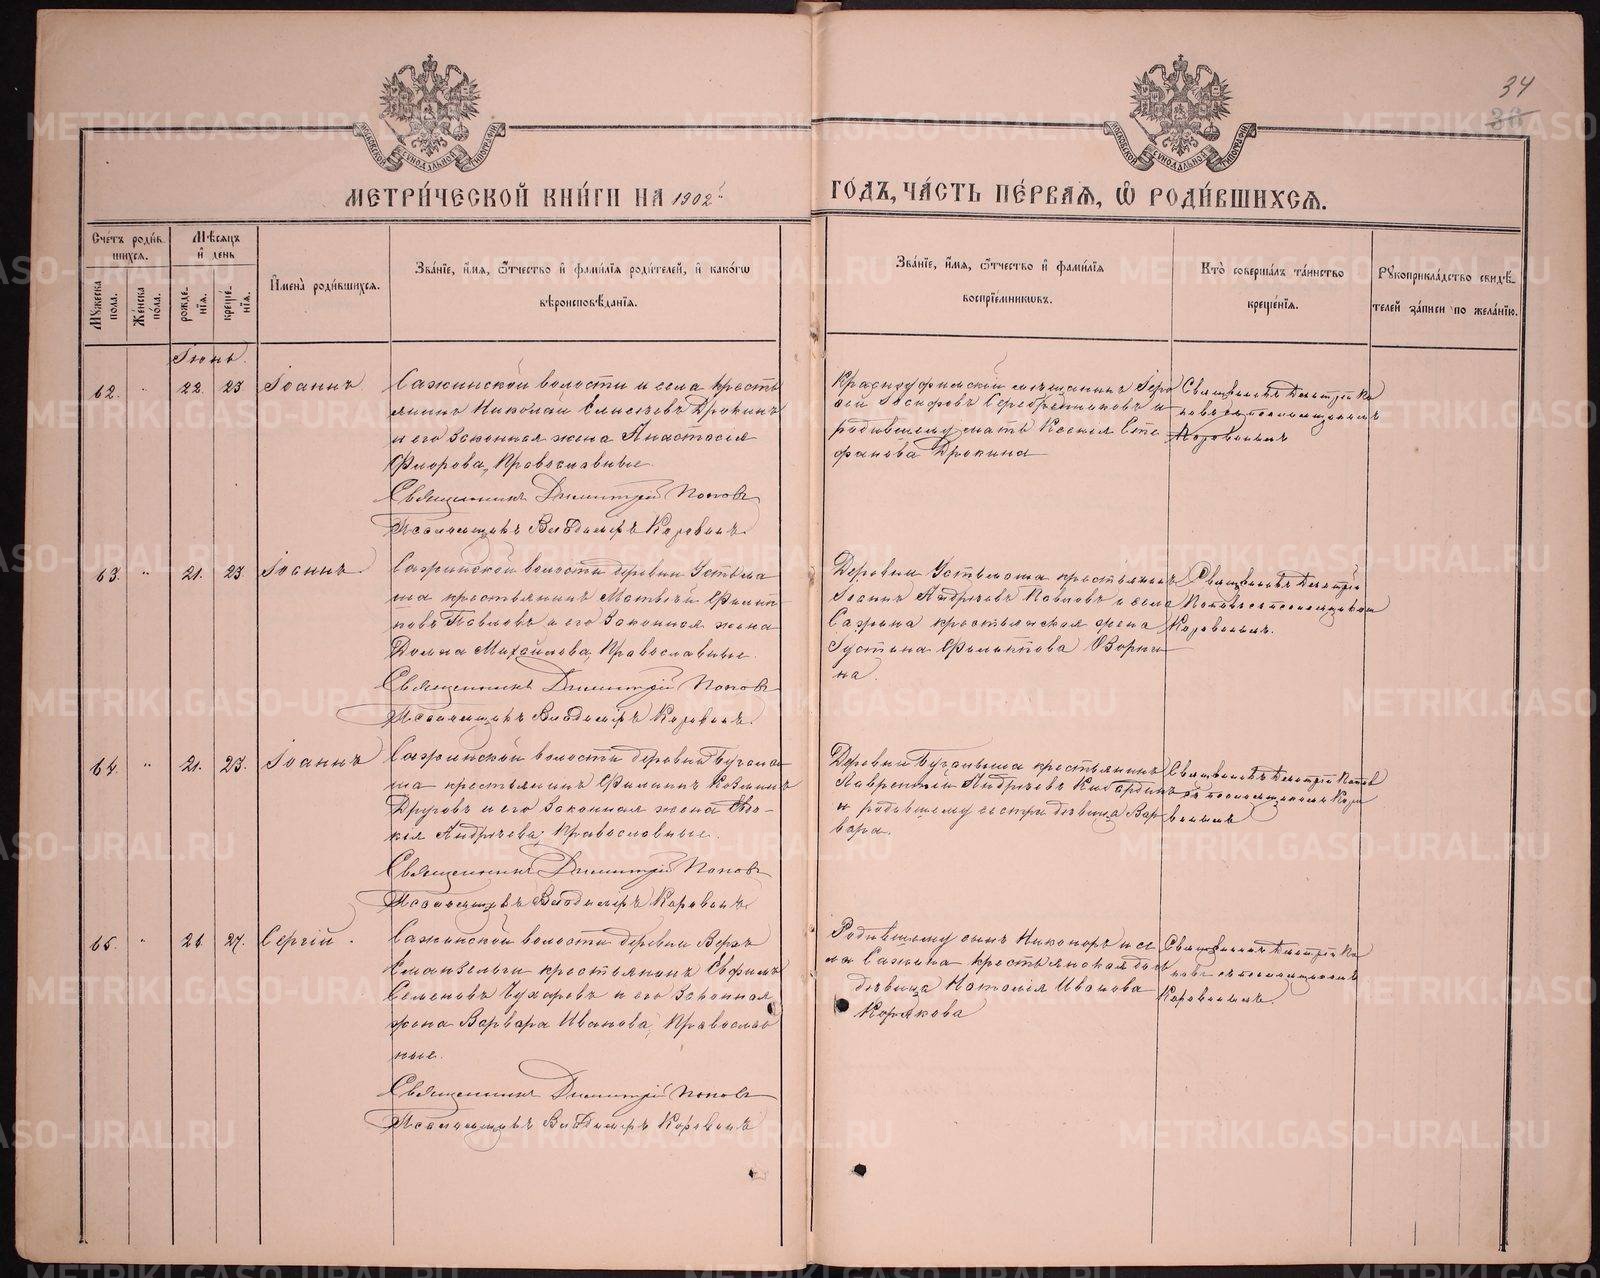 34
36
МЕТРИ́ЧЕСКОЙ КНИ́ГИ НА 1902 ГО́ДЪ, ЧА́СТЬ ПЕ́РВАѦ, Ѡ҆ РОДИ́ВШИХСѦ.
Сче́тъ роди́вшихсѧ.
Мꙋ́жеска по́ла.
Же́нска по́ла.
Мѣ́сѧцъ и҆ де́нь
рожде́нїѧ.
креще́нїѧ.
И҆мена̀ роди́вшихсѧ.
Зва́нїе, и҆́мѧ, ѻ҆́тчество и҆ фами́лїѧ роди́телей, и҆ како́гѡ
вѣроисповѣ́данїѧ.
Зва́нїе, и҆́мѧ, ѻ҆́тчество и҆ фами́лїѧ
воспрїе́мникѡвъ.
Кто̀ соверша́лъ та́инство
креще́нїѧ.
Рꙋкоприкла́дство свидѣ́-
телей за́писи по жела́нїю.
Іюнь.
62. " 22. 23 Іоаннъ
Сажинской волости и села кресть
янинъ Николай Елисеевъ Дрокинъ
и его законная жена Анастасія
Флорова, Православные.
Священникъ Димитрій Поповъ
Псаломщикъ Владиміръ Коровинъ.
Красноуфимскій мѣщанинъ
Іосифовъ Серебренниковъ и
родившему мать Ксенія Сте
фанова Дрокина
Священникъ Димитрій По
повъ съ псаломщикомъ
Коровинымъ
63. " 21. 23 Іоаннъ.
Сажинской волости деревни Устьма
ша крестьянинъ Матвѣй Филип
повъ Павловъ и его законная жена
Домна Михайлова, Православные.
Священникъ Димитрій Поповъ
Псаломщикъ Владиміръ Коровинъ.
Деревни Устьмаша крестьянинъ
Іоаннъ Андреевъ Павловъ и села
Сажина крестьянская жена
Іустина Филиппова
на.
Священникъ Димитрій
Поповъ съ псаломщикомъ
Коровинымъ.
64. " 21. 23. Іоаннъ
Сажинской волости деревни Бугалы
ша крестьянинъ Филиппъ Козминъ
Друговъ и его законная жена Ев
кія Андреева, Православные.
Священникъ Димитрій Поповъ
Псаломщикъ Владиміръ Коровинъ.
Деревни Бугалыша крестьянинъ
Лаврентій Андреевъ Кибардинъ
и родившему сестра дѣвица Вар
вара.
Священникъ Димитрій Поповъ
съ псаломщикомъ Коро
винымъ
65. " 26 27. Сергій.
Сажинской волости деревни Верхъ
крестьянинъ Евфимъ
Семеновъ Чухаревъ и его законная
жена Варвара Иванова, Православ
ные.
Священникъ Димитрій Поповъ
Псаломщикъ Владиміръ Коровинъ
Родившему сынъ Никоноръ и се
ла Сажина крестьянская дочь
дѣвица Наталія Иванова
Корякова
Священникъ Димитрій По
повъ съ псаломщикомъ
Коровинымъ.
METRIKI.GASO-URAL.RU